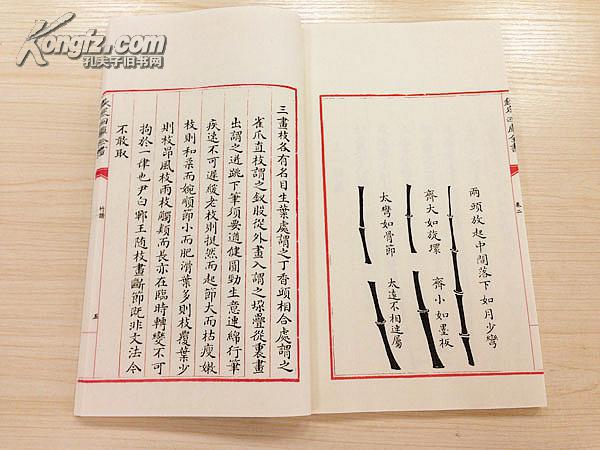 Kongfz.com
孔夫子旧书网
卷二
兩頭放起中間落下如月少彎
齊大如旋環
齊小如墨板
太彎如骨節
太遠不相連屬
三畫枝各有名目生葉處謂之丁香頭相合處謂之
雀爪直枝謂之釵股從外畫入謂之垜疊從裏畫
出謂之迸跳下筆須要遒健圓勁生意連綿行筆
疾速不可遲緩老枝則挺然而起節大而枯瘦嫩
枝則和柔而婉順節小而肥滑葉多則枝覆葉少
則枝昂風枝雨枝觸類而長亦在臨時轉變不可
拘於一律也尹白鄆王随枝畫斷節既非文法今
不敢取
竹譜
五